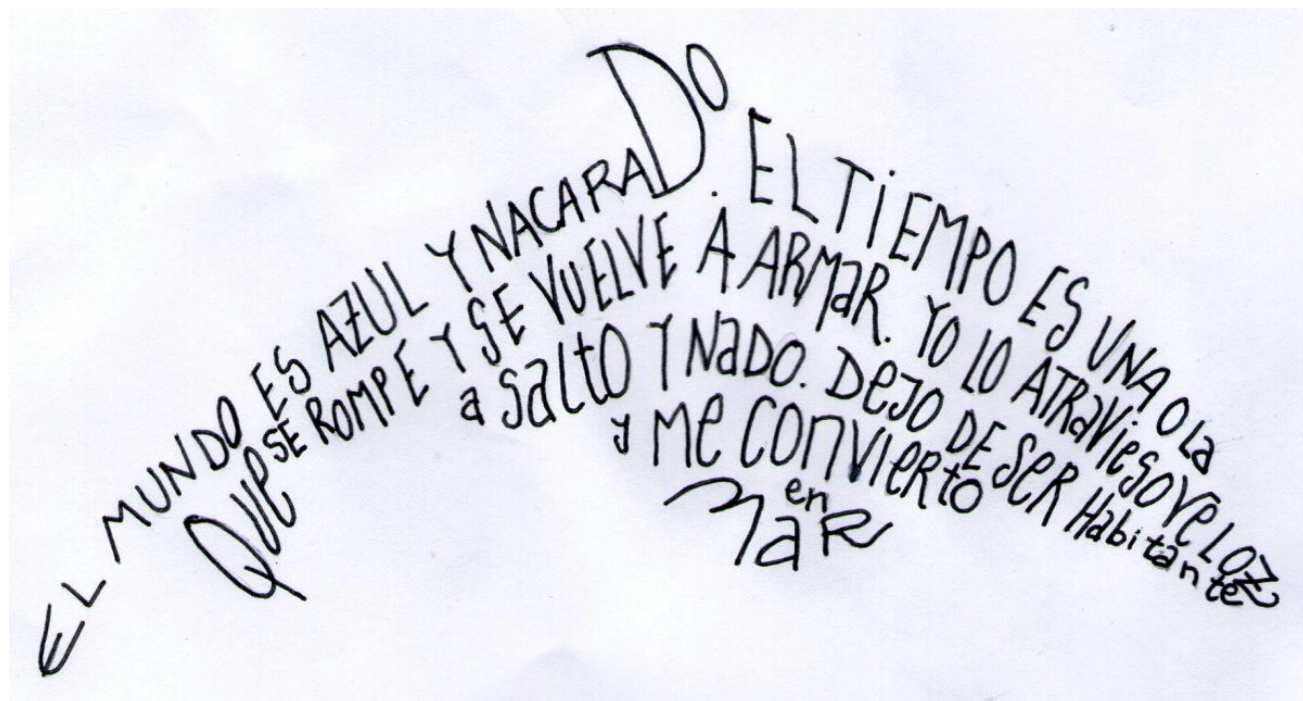 EL MUNDO ES AZUL Y NACARADO. EL TiEMPO ES UNA OLa
QUE SE ROMPE Y SE VUELVE A ARMaR. YO LO ATRaVieSO VeLOZ
a SaLtO Y NaDO. DeJO DE SeR HabitanteZ
y Me CONVIeRtO
en
MaR